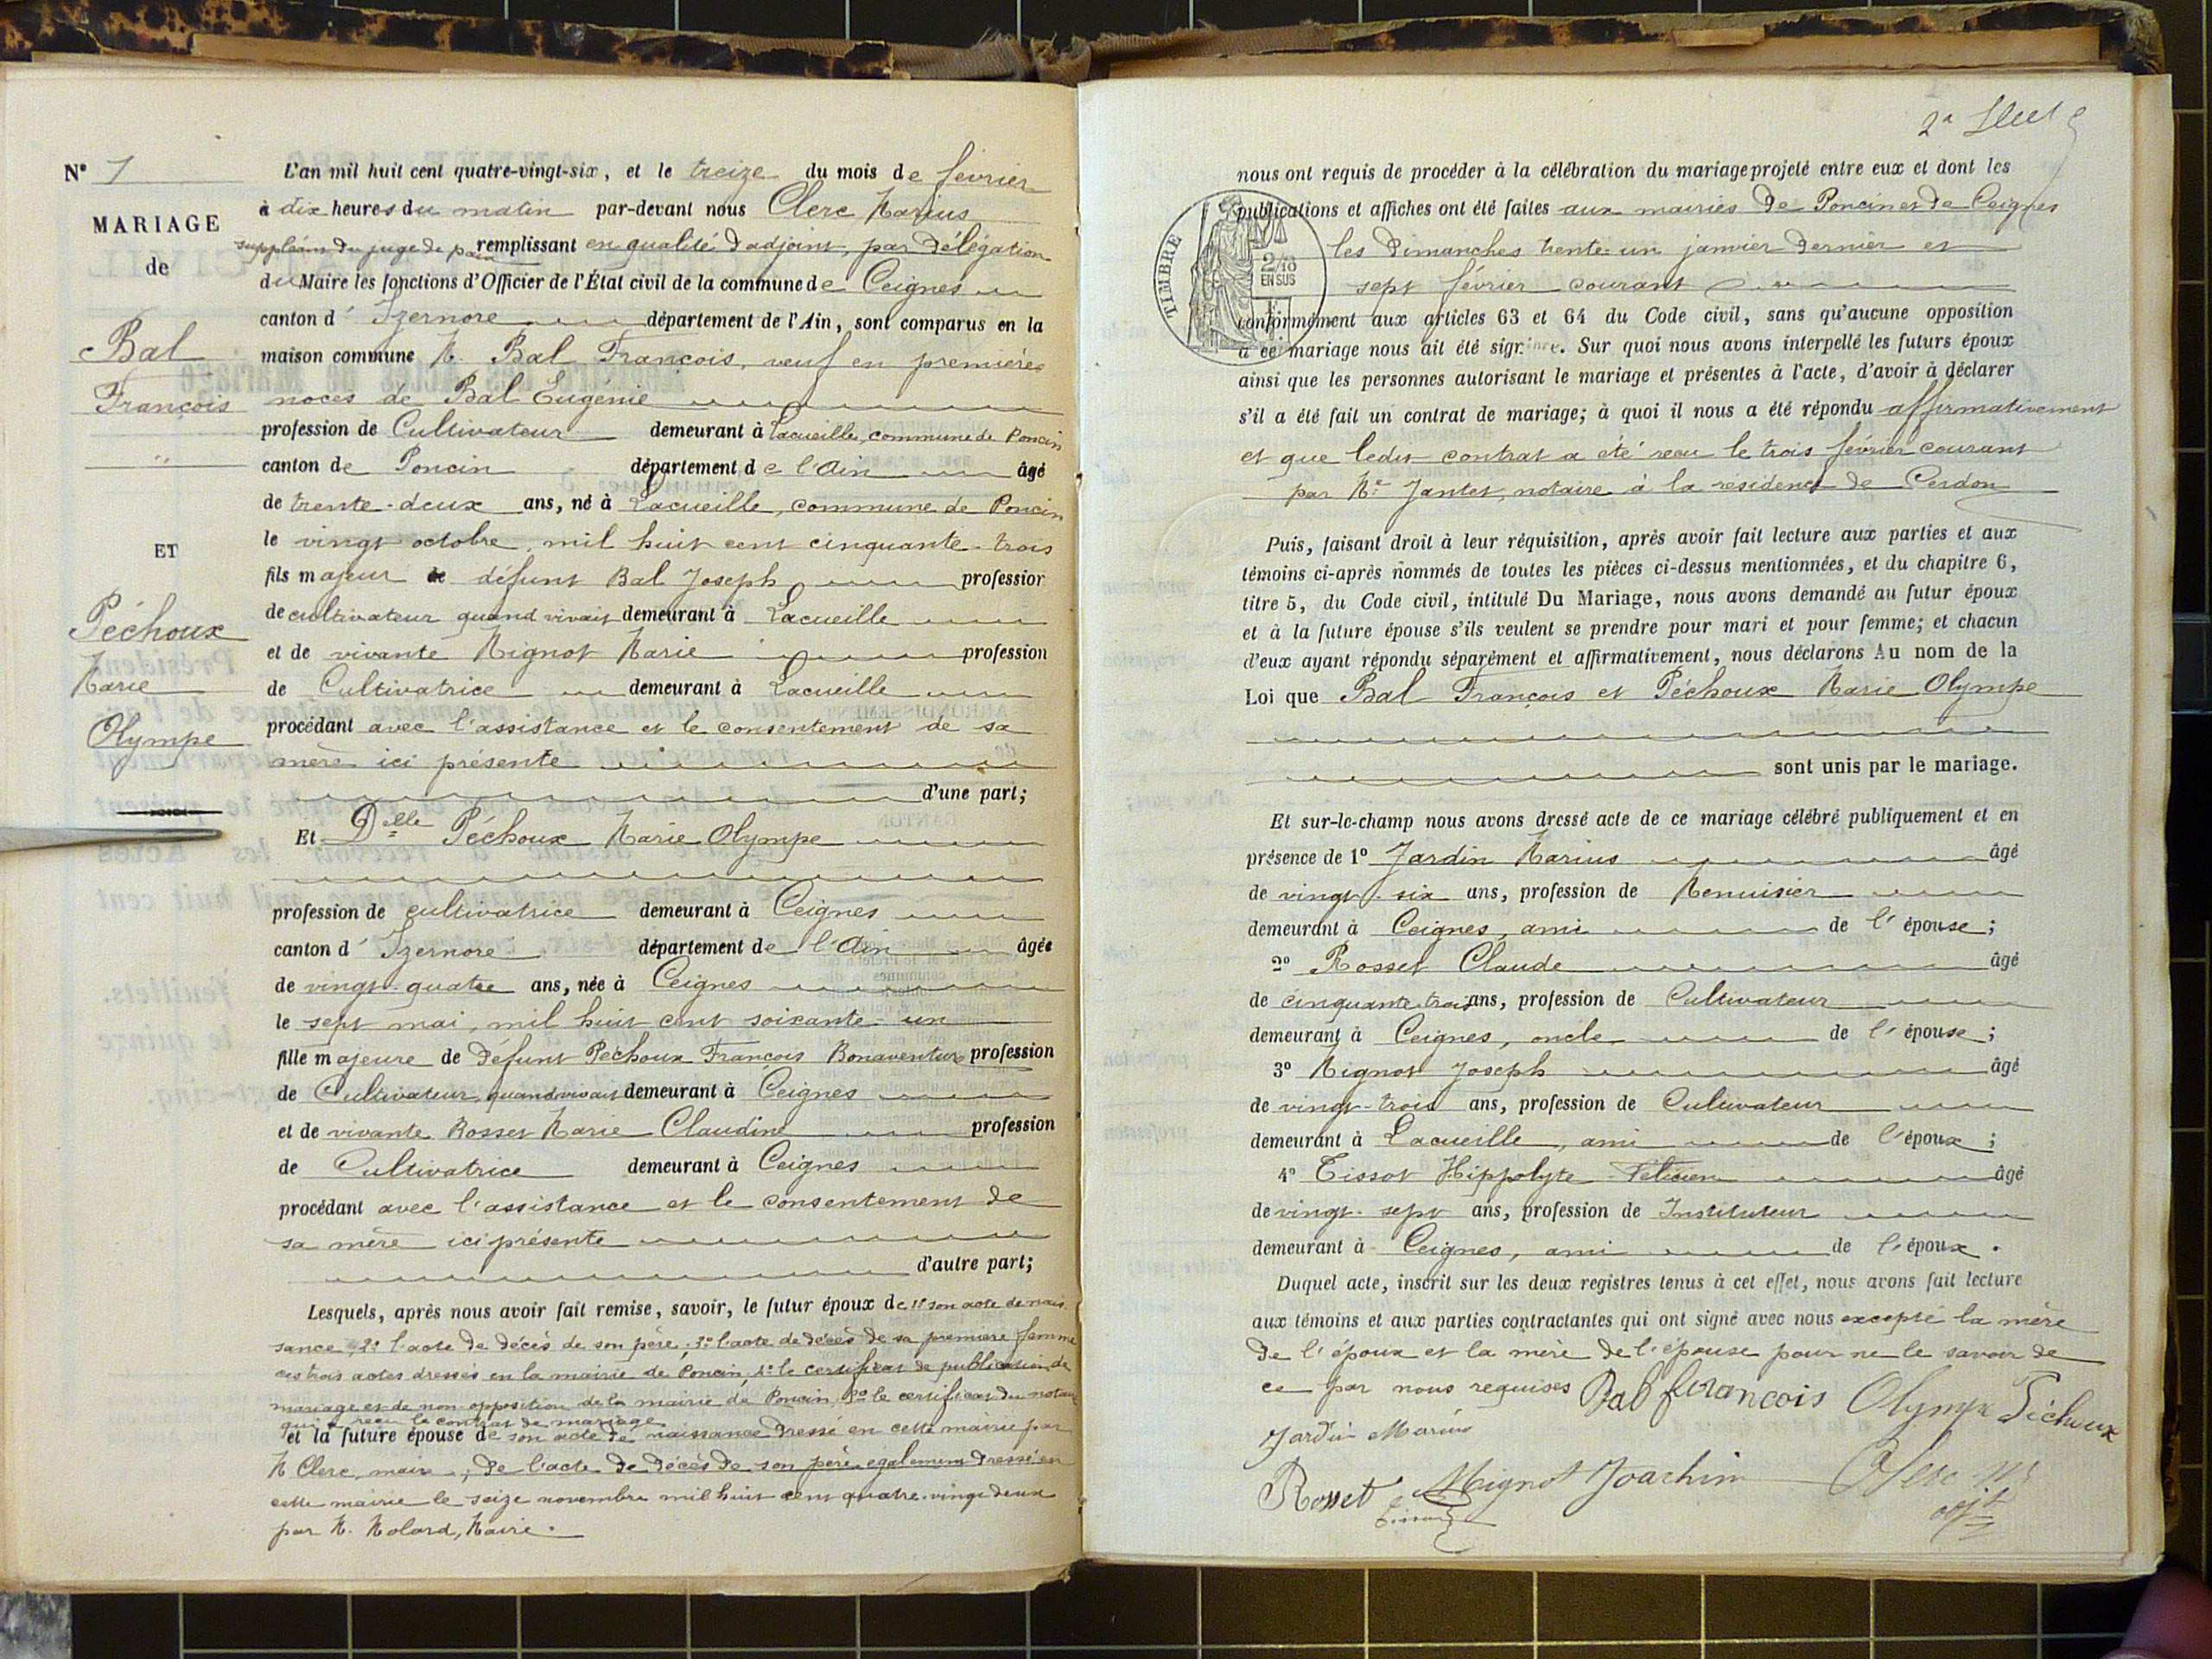 N° 1
MARIAGE
de
Bal
François
ET
Péchoux
Marie
Olympe
L'an mil huit cent quatre-vingt-six, et le treize du mois de février
à dix heures du matin par-devant nous Clerc Marius
suppléant du juge de paix remplissant en qualité d'adjoint, par délégation
du Maire les fonctions d'Officier de l'État civil de la commune de Ceignes
canton d'Izernore département de l'Ain, sont comparus en la
maison commune M. Bal François, veuf en premières
noces de Bal Eugénie
profession de Cultivateur demeurant à Lacueille, commune de Poncin
canton de Poncin département de l'Ain âgé
de trente-deux ans, né à Lacueille, commune de Poncin
le vingt octobre, mil huit cent cinquante-trois
fils majeur de défunt Bal Joseph profession
de cultivateur quand vivait demeurant à Lacueille
et de vivante Mignot Marie profession
de Cultivatrice demeurant à Lacueille
procédant avec l'assistance et le consentement de sa
mère ici présente
d'une part;
Et Delle Péchoux Marie Olympe
profession de cultivatrice demeurant à Ceignes
canton d'Izernore département de l'Ain âgée
de vingt-quatre ans, née à Ceignes
le sept mai, mil huit cent soixante-un
fille majeure de défunt Péchoux François Bonaventure profession
de Cultivateur, quand vivait demeurant à Ceignes
et de vivante Rosset Marie Claudine profession
de Cultivatrice demeurant à Ceignes
procédant avec l'assistance et le consentement de
sa mère ici présente
d'autre part;
Lesquels, après nous avoir fait remise, savoir, le futur époux de 1° son acte de nais
sance, 2° l'acte de décès de son père, 3° l'acte de décès de sa première femme
ces trois actes dressés en la mairie de Poncin, 4° le certificat de publication de
mariage et de non opposition de la mairie de Poncin, 5° le certificat du notaire
qui a reçu le contrat de mariage
et la future épouse de son acte de naissance dressé en cette mairie par
M Clerc, maire, de l'acte de décès de son père également dressé en
cette mairie le seize novembre mil huit cent quatre-vingt deux
par M. Molard, Maire.
nous ont requis de procéder à la célébration du mariage projeté entre eux et dont les
publications et affiches ont été faites aux mairies de Poncin et de Ceignes
les dimanches trente-un janvier dernier et
sept février courant
TIMBRE
2/10
EN SUS
conformément aux articles 63 et 64 du Code civil, sans qu'aucune opposition
à ce mariage nous ait été signifiée. Sur quoi nous avons interpellé les futurs époux
ainsi que les personnes autorisant le mariage et présentes à l'acte, d'avoir à déclarer
s'il a été fait un contrat de mariage; à quoi il nous a été répondu affirmativement
et que ledit contrat a été reçu le trois février courant
par Me Jantet, notaire à la résidence de Cerdon
Puis, faisant droit à leur réquisition, après avoir fait lecture aux parties et aux
témoins ci-après nommés de toutes les pièces ci-dessus mentionnées, et du chapitre 6,
titre 5, du Code civil, intitulé Du Mariage, nous avons demandé au futur époux
et à la future épouse s'ils veulent se prendre pour mari et pour femme; et chacun
d'eux ayant répondu séparément et affirmativement, nous déclarons Au nom de la
Loi que Bal François et Péchoux Marie Olympe
sont unis par le mariage.
Et sur-le-champ nous avons dressé acte de ce mariage célébré publiquement et en
présence de 1° Jardin Marius âgé
de vingt-six ans, profession de Menuisier
demeurant à Ceignes, ami de l'épouse;
2° Rosset Claude âgé
de cinquante-trois ans, profession de Cultivateur
demeurant à Ceignes, oncle de l'épouse;
3° Mignot Joseph âgé
de vingt-trois ans, profession de Cultivateur
demeurant à Lacueille, ami de l'époux;
4° Tissot Hippolyte Félicien âgé
de vingt-sept ans, profession de Instituteur
demeurant à Ceignes, ami de l'époux.
Duquel acte, inscrit sur les deux registres tenus à cet effet, nous avons fait lecture
aux témoins et aux parties contractantes qui ont signé avec nous excepté la mère
de l'époux et la mère de l'épouse pour ne le savoir de
ce par nous requises Bal francois Olympe Péchoux
Jardin Marius
Rosset Mignot Joachin Clerc Ms
adjt